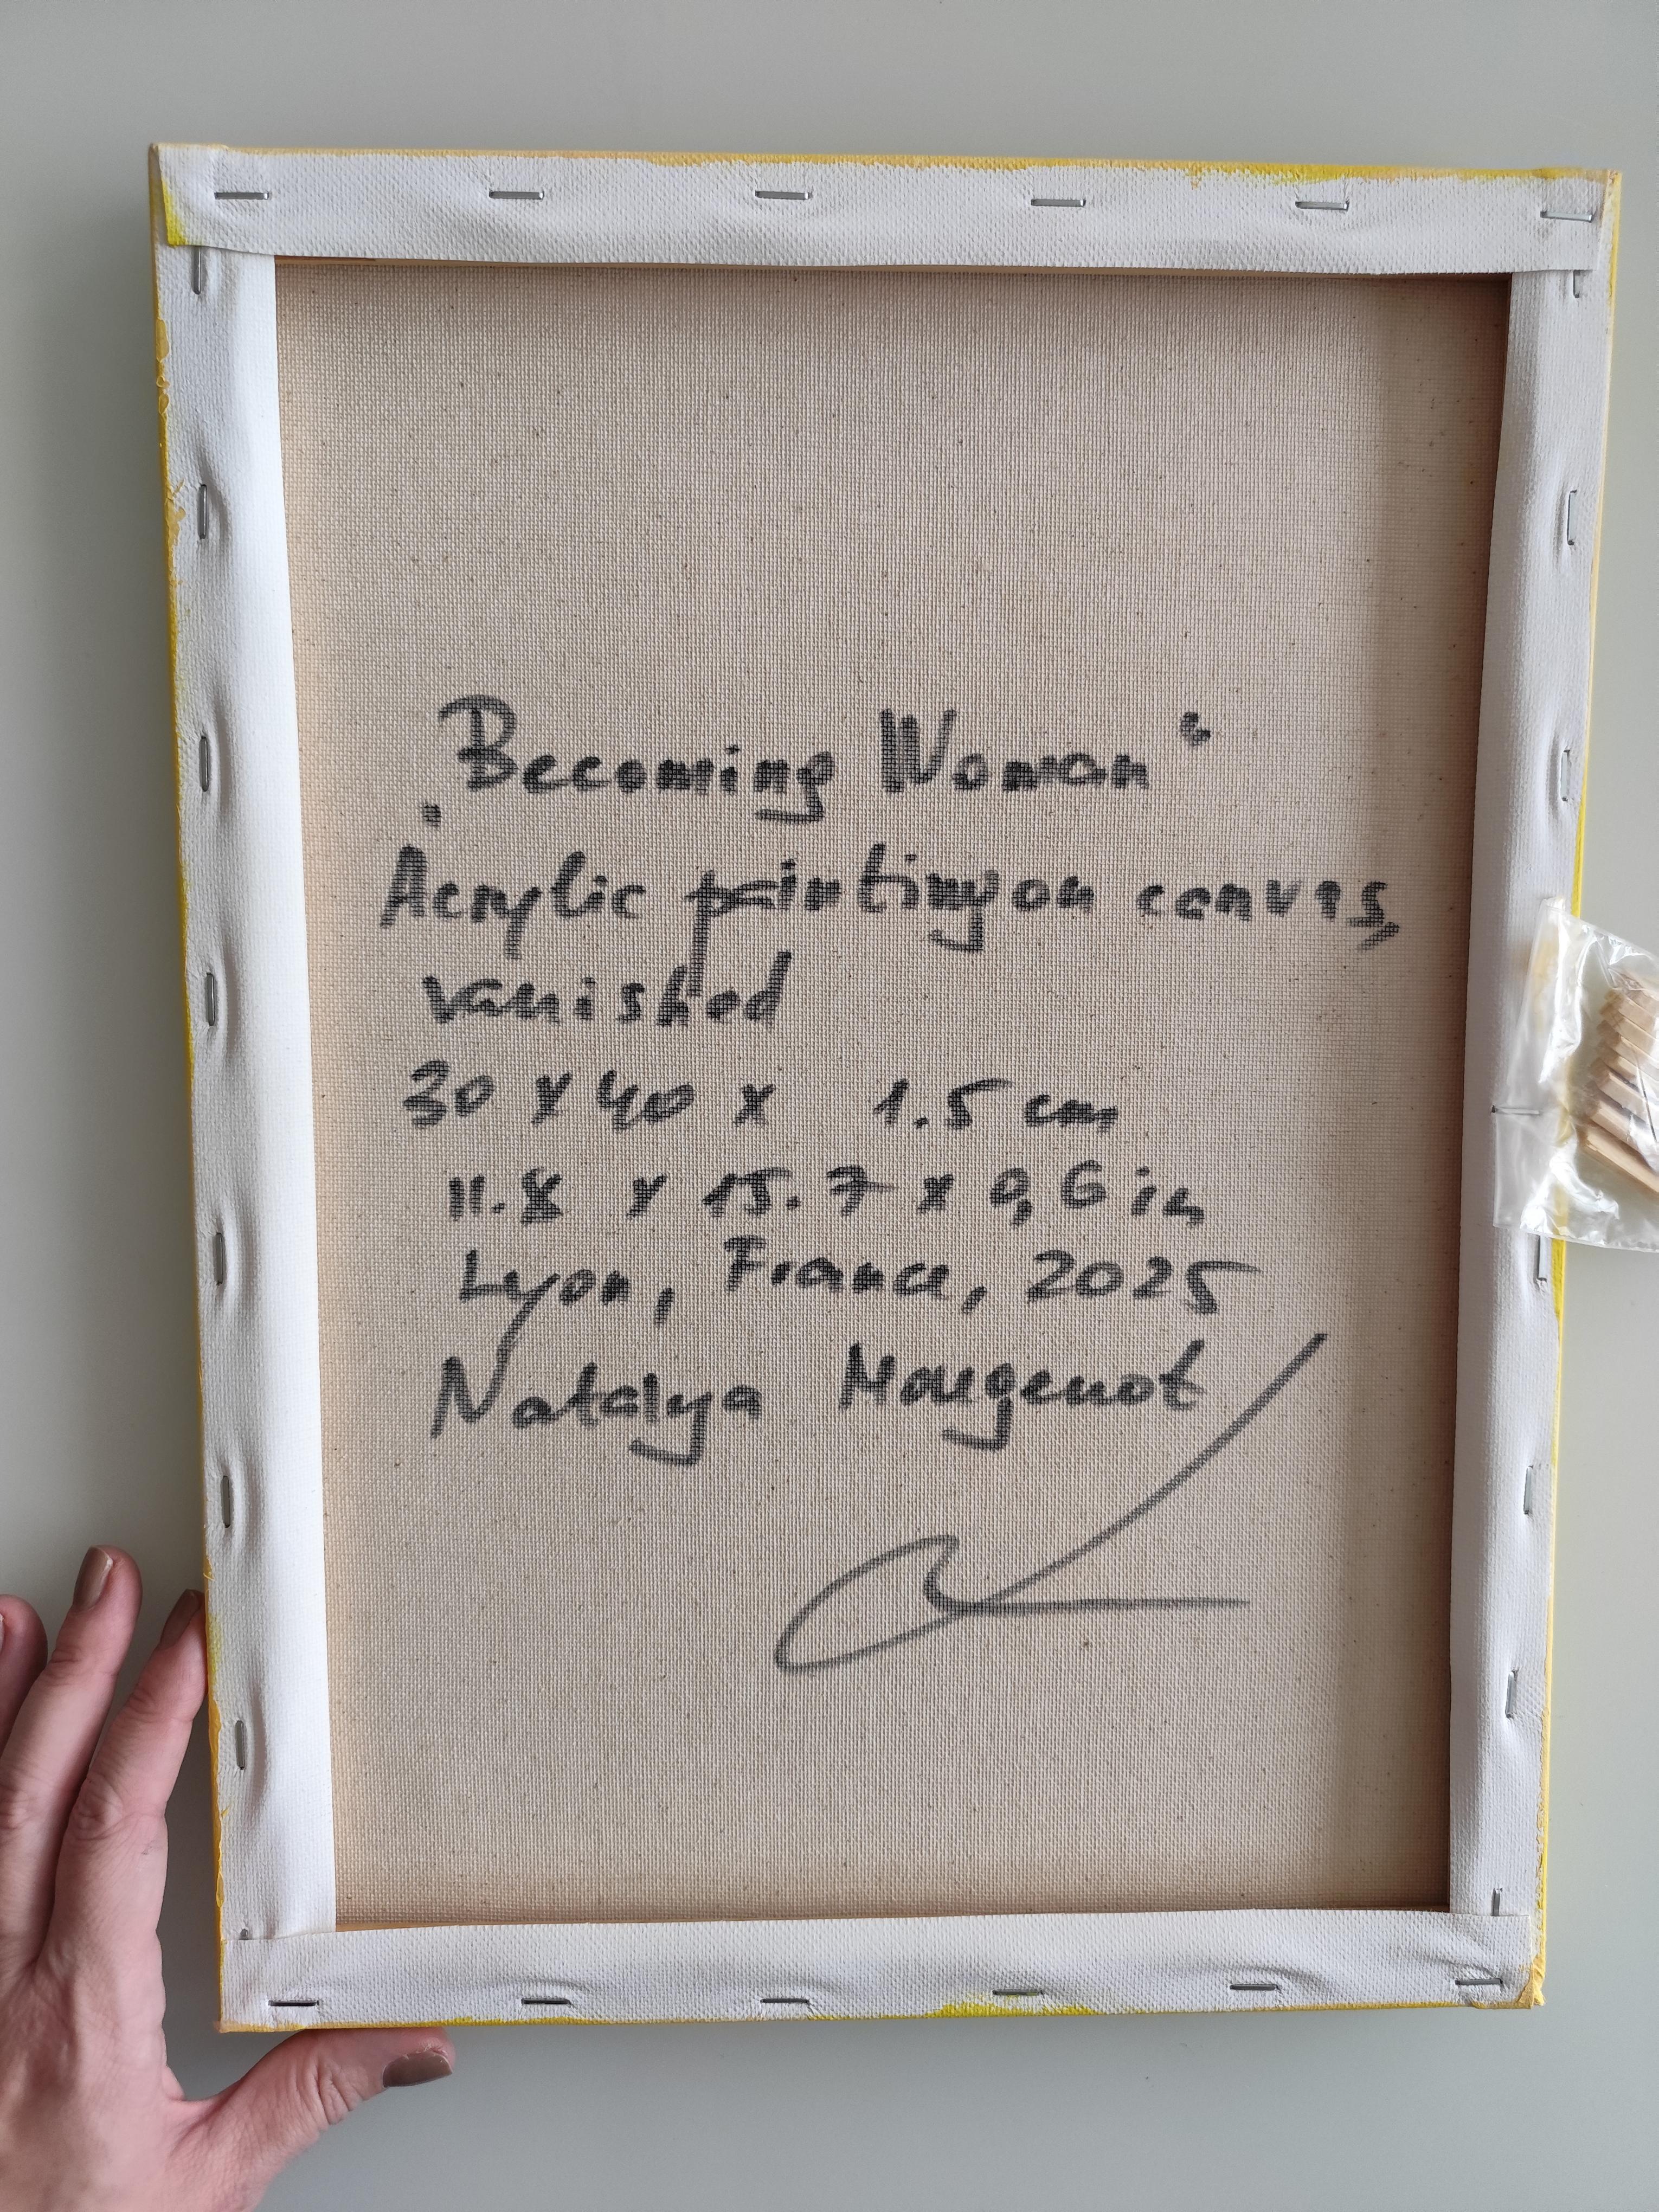 „Becoming Woman“
Acrylic painting on canvas,
vanished
30 x 40 x 1.5 cm
11.8 x 15.7 x 0,6 in
Lyon, France, 2025
Natalya Mougenot